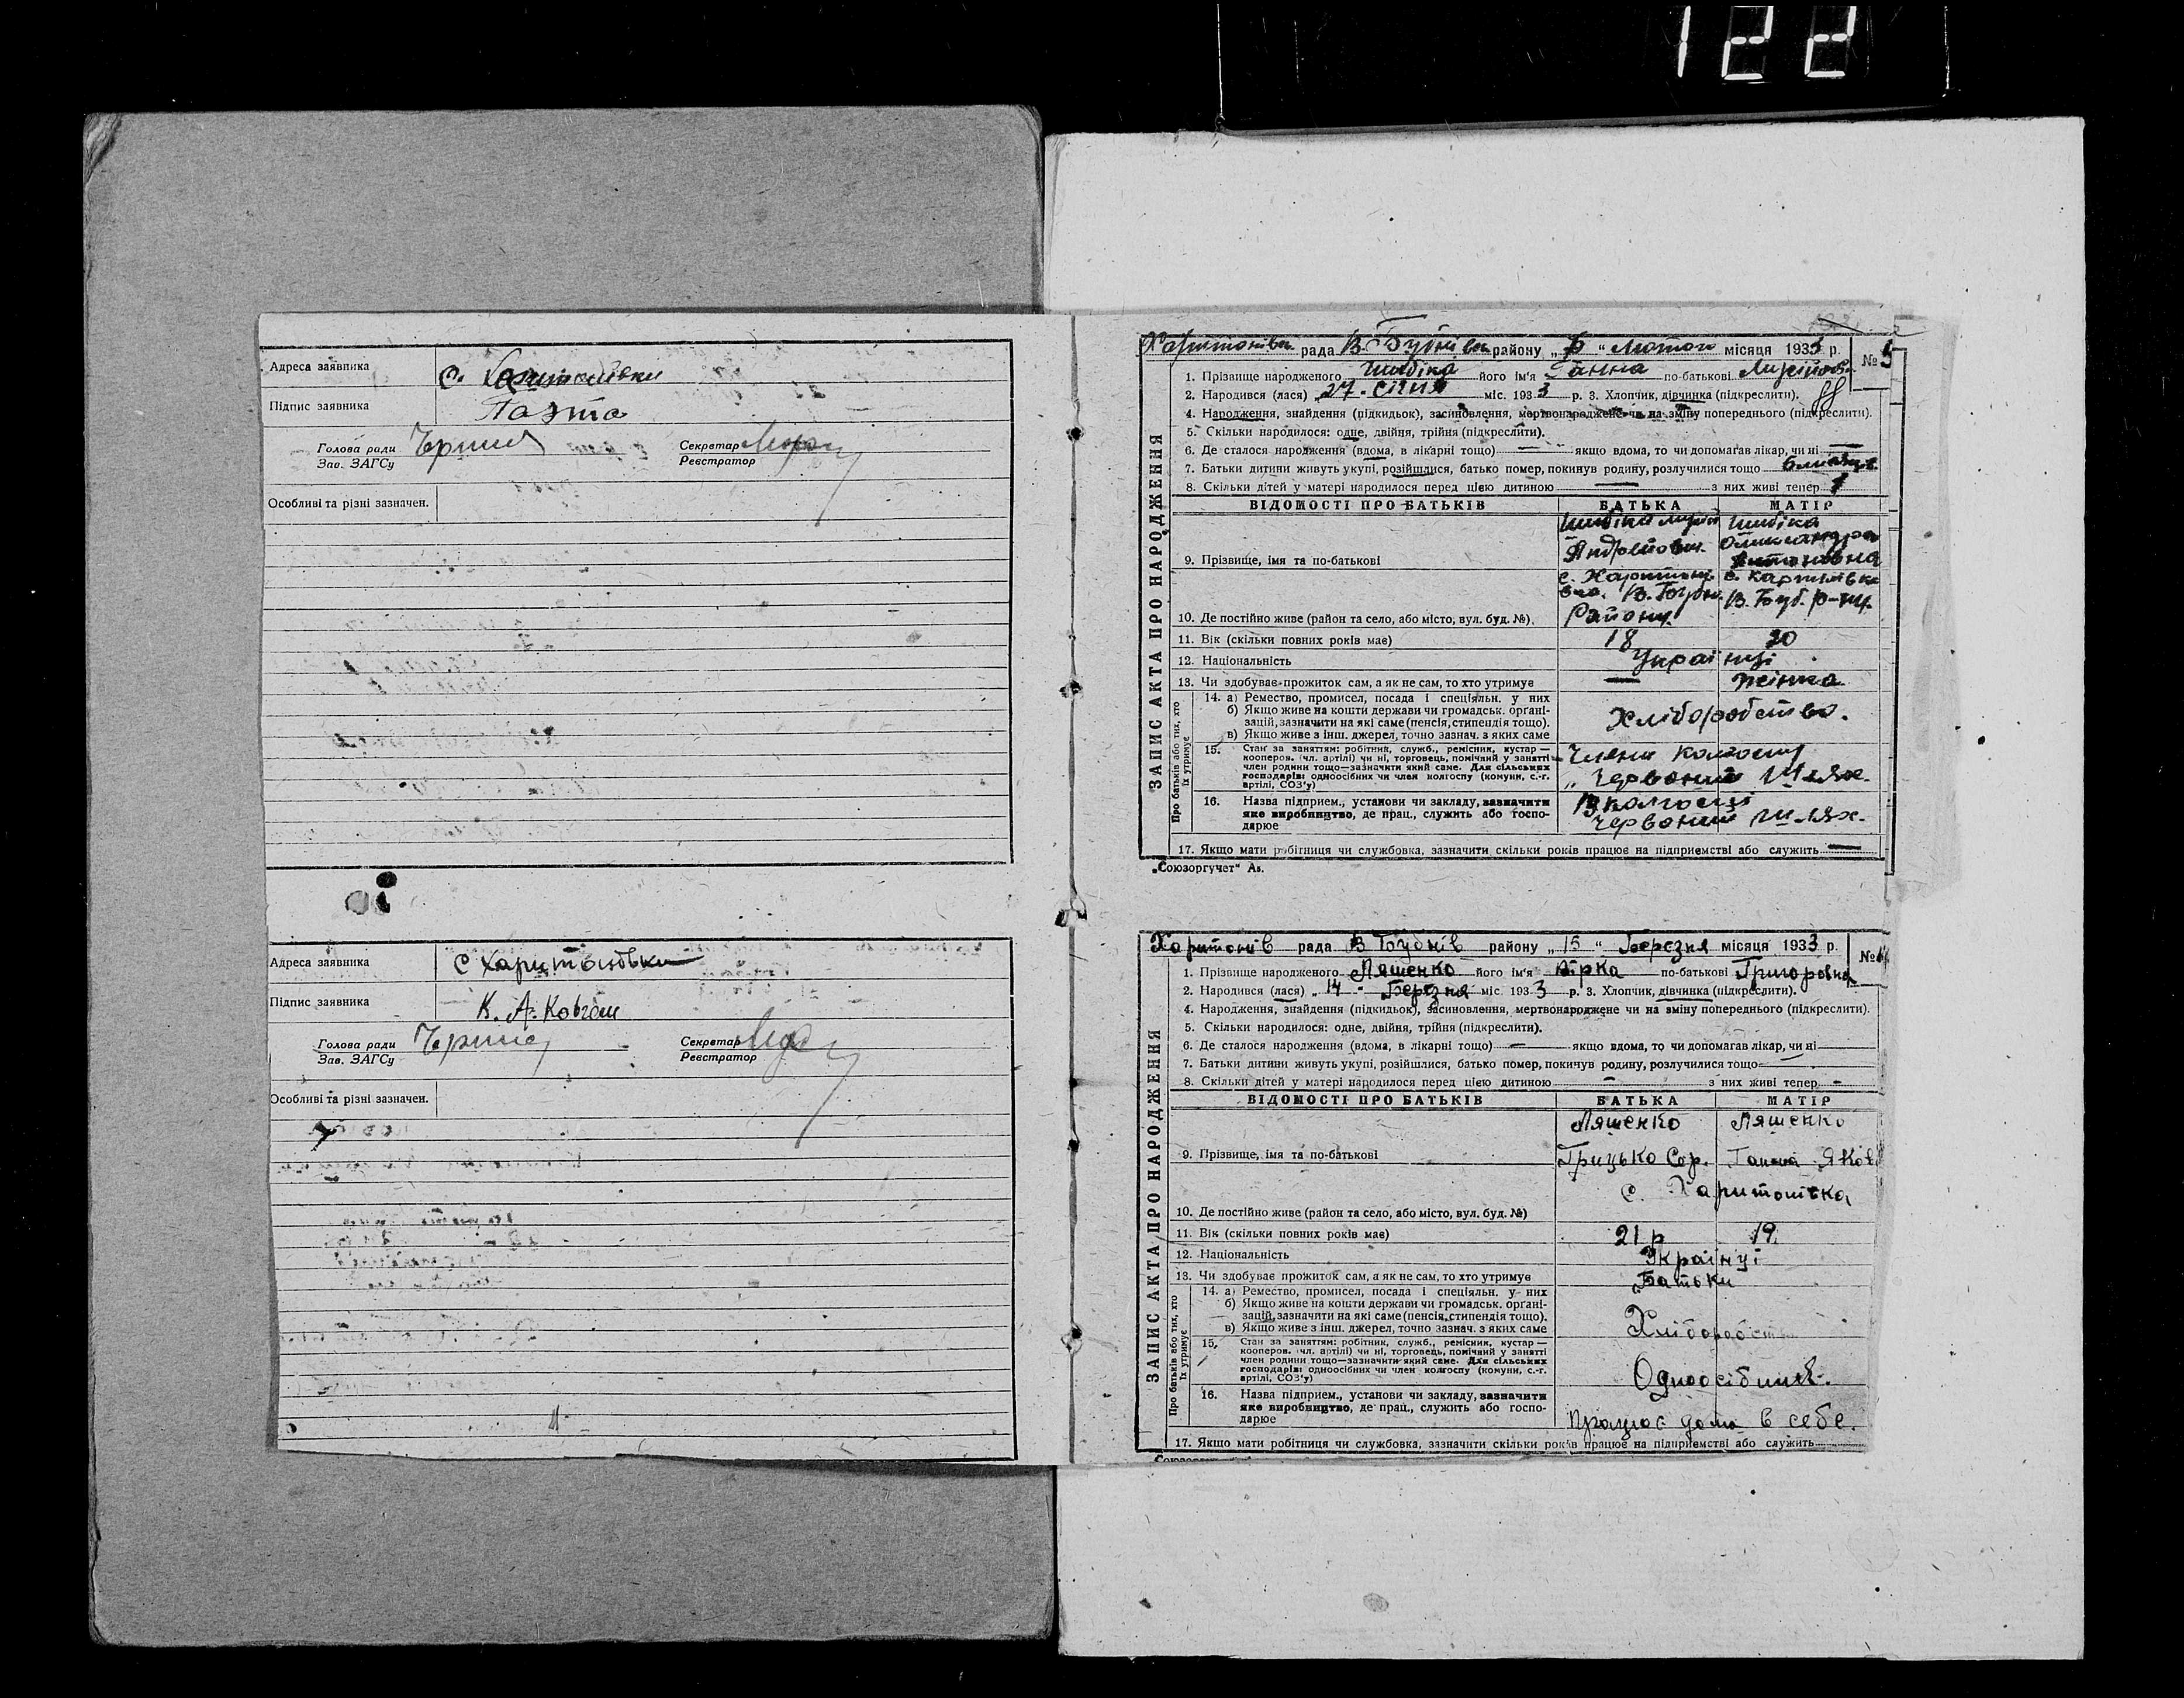 122
Адреса заявника с. Харитонівки
Підпис заявника
Голова ради
Зав. ЗАГСу
Секретар
Реєстратор
Особливі та різні зазначен.
Адреса заявника с Харитоновки
Підпис заявника К. А. Ковган
Голова ради
Зав. ЗАГСу
Секретар
Реєстратор
Особливі та різні зазначен.
ЗАПИС АКТА ПРО НАРОДЖЕННЯ
рада району „ “ Лютого місяця 1933 р. № 5
1. Прізвище народженого його ім'я Ганна по-батькові
2. Народився (лася) „ 27 - січня міс. 1933 р. 3. Хлопчик, дівчинка (підкреслити).
4. Народження, знайдення (підкидьок), засиновлення, мертвонароджене чи на зміну попереднього (підкреслити).
5. Скільки народилося: одне, двійня, трійня (підкреслити).
6. Де сталося народження (вдома, в лікарні тощо) — якщо вдома, то чи допомагав лікар, чи ні —
7. Батьки дитини живуть укупі, розійшлися, батько помер, покинув родину, розлучилися тощо
8. Скільки дітей у матері народилося перед цією дитиною — з них живі тепер 1
ВІДОМОСТІ ПРО БАТЬКІВ БАТЬКА МАТІР
9. Прізвище, імя та по-батькові
10. Де постійно живе (район та село, або місто, вул. буд. №)
Району
11. Вік (скільки повних років має) 18 20
12. Національність Українці
13. Чи здобуває прожиток сам, а як не сам, то хто утримує —
Про батьків або тих, хто їх утримує
14. а) Ремество, промисел, посада і спеціяльн. у них
б) Якщо живе на кошти держави чи громадськ. органі-
зацій, зазначити на які саме (пенсія, стипендія тощо).
в) Якщо живе з інш. джерел, точно зазнач. з яких саме
Хліборобство.
15. Стан за заняттям: робітник, служб., ремісник, кустар —
кооперов. (чл. артілі) чи ні, торговець, помічний у занятті
член родини тощо—зазначити який саме. Для сільських
господарів: одноосібних чи член колгоспу (комуни, с.-г.
артілі, СОЗ'у)
Члени колгоспу
„Червоний Шлях.
16. Назва підприєм., установи чи закладу, зазначити
яке виробництво, де прац., служить або госпо-
дарює
В колгоспі
Червоний шлях.
17. Якщо мати робітниця чи службовка, зазначити скільки років працює на підприємстві або служить —
„Союзоргучет“ Ав.
ЗАПИС АКТА ПРО НАРОДЖЕННЯ
Харитонів рада В Бубнів району „ 15 “ Березня місяця 1933 р. №
1. Прізвище народженого Ляшенко його ім'я по-батькові Григоровна
2. Народився (лася) „ 14 - Березня міс. 1933 р. 3. Хлопчик, дівчинка (підкреслити).
4. Народження, знайдення (підкидьок), засиновлення, мертвонароджене чи на зміну попереднього (підкреслити).
5. Скільки народилося: одне, двійня, трійня (підкреслити).
6. Де сталося народження (вдома, в лікарні тощо) — якщо вдома, то чи допомагав лікар, чи ні
7. Батьки дитини живуть укупі, розійшлися, батько помер, покинув родину, розлучилися тощо —
8. Скільки дітей у матері народилося перед цією дитиною — з них живі тепер —
ВІДОМОСТІ ПРО БАТЬКІВ БАТЬКА МАТІР
Ляшенко Ляшенко
9. Прізвище, імя та по-батькові Грицько Сер. Ганна Яков
с. Харитонівка
10. Де постійно живе (район та село, або місто, вул. буд. №)
11. Вік (скільки повних років має) 21 р 19.
12. Національність Українці
13. Чи здобуває прожиток сам, а як не сам, то хто утримує Батьки
Про батьків або тих, хто їх утримує
14. а) Ремество, промисел, посада і спеціяльн. у них
б) Якщо живе на кошти держави чи громадськ. органі-
зацій, зазначити на які саме (пенсія, стипендія тощо).
в) Якщо живе з інш. джерел, точно зазнач. з яких саме
Хліборобст
15. Стан за заняттям: робітник, служб., ремісник, кустар —
кооперов. (чл. артілі) чи ні, торговець, помічний у занятті
член родини тощо—зазначити який саме. Для сільських
господарів: одноосібних чи член колгоспу (комуни, с.-г.
артілі, СОЗ'у)
Одноосібник.
16. Назва підприєм., установи чи закладу, зазначити
яке виробництво, де прац., служить або госпо-
дарює
працює дома в себе.
17. Якщо мати робітниця чи службовка, зазначити скільки років працює на підприємстві або служить